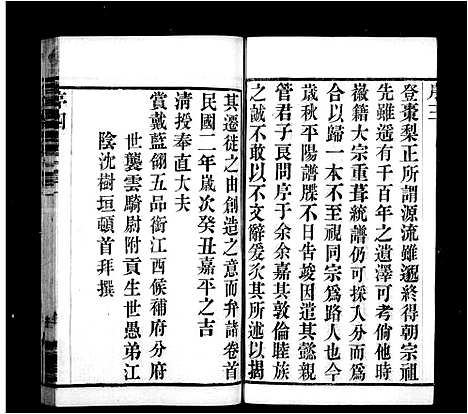 序三
登棗梨正所謂源流雖遡終得朝宗祖
先雖遥有千百年之遺澤可考倘他時
徽籍大宗重葺統譜仍可採入分而仍
合以歸一本不至視同宗為路人也今
歲秋平陽譜牒不日告竣因其懿親
管君子長問序于余余嘉其敦倫睦族
之誠不敢以不文辭爰次其所述以揭
其遷徙之由創造之意而弁諸卷首
民國二年歲次癸丑嘉平之吉
清授奉直大夫
賞戴藍翎五品銜江西候補府分府
世襲雲騎尉附貢生世愚弟江
陰沈樹垣頓首拜撰
序四